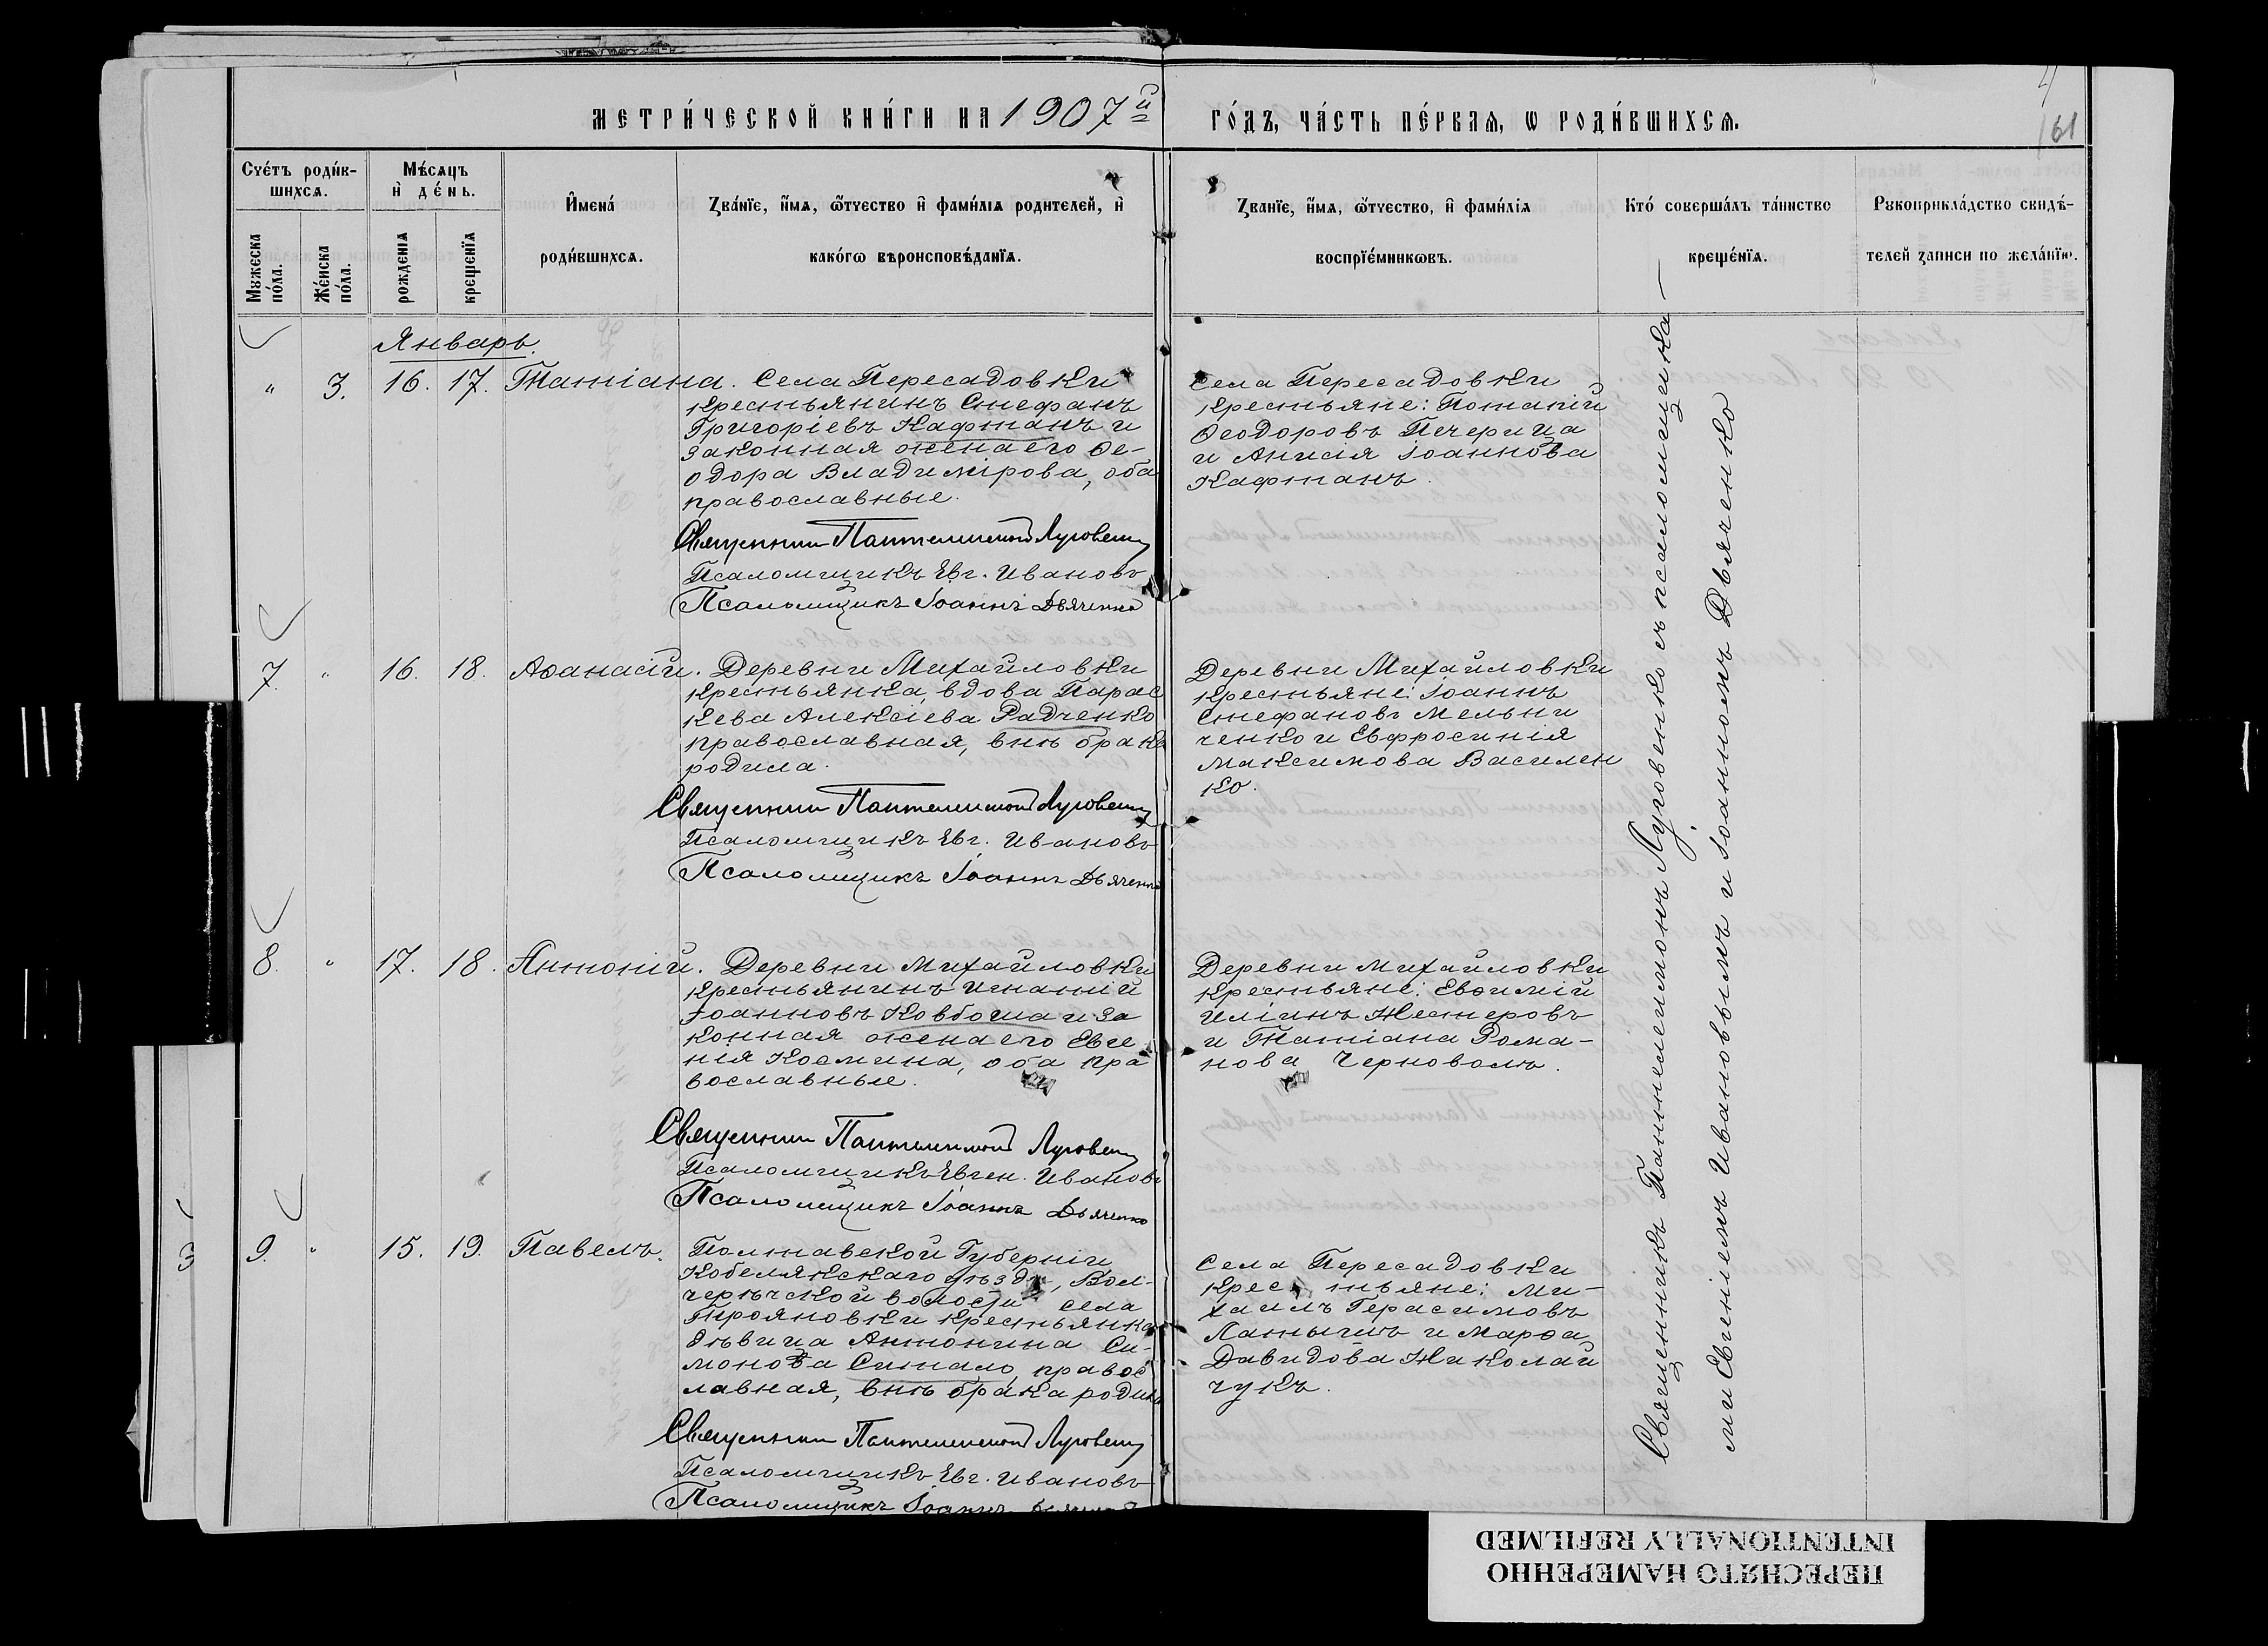 МЕТРИ́ЧЕСКОЙ КНИ́ГИ НА 1907й ГО́ДЪ, ЧА́СТЬ ПЕ́РВАЯ, Ѡ РОДИ́ВШИХСѦ.
161
Сче́тъ роди́в-
шихсѧ.
Мꙋжеска по́ла.
Же́нска по́ла.
Мѣ́сѧцъ
и҆ де́нь.
рожденіѧ
крещенїѧ
И҆мена́
роди́вшихсѧ.
Зва́нїе, и҆́мѧ, ѻ҆́тчество и҆ фами́лїѧ родителей, и҆
како́гѡ вѣроисповѣ́данїѧ.
Званїе, и҆́мѧ, ѻ҆́тчество, и҆ фами́лїѧ
воспрїе́мникѡвъ.
Кто́ соверша́лъ та́инство
креще́нїѧ.
Рꙋкоприкла́дство свидѣ́-
телей записи по жела́нїю.
Январь.
" 3. 16. 17. Татіана. Села Пересадовки
крестьянинъ Стефанъ
Григоріевъ Кафтанъ и
законная жена его Ѳе-
одора Владимірова, оба
православные.
Священник Пантелеимонъ Луговенко
Псаломщикъ Евг. Ивановъ
Псаломщикъ Іоаннъ Дьяченко
Села Пересадовки
крестьяне: Потапій
Ѳеодоровъ Печерица
и Анисія Іоаннова
Кафтанъ.
7. " 16. 18. Аѳанасій. Деревни Михайловки
крестьянка, вдова Парас
кева Алексіева Радченко
православная, внѣ брака
родила.
Священник Пантелеимонъ Луговенко
Псаломщикъ Евг. Ивановъ
Псаломщикъ Іоаннъ Дьяченко
Деревни Михайловки
крестьяне: Іоаннъ
Стефановъ Мельни
ченко и Евфросинія
Максимова Василен
ко.
8. " 17. 18. Антоній. Деревни Михайловки
крестьянинъ Игнатій
Іоанновъ Ковбоша и за
конная жена его Евге
нія Космина, оба пра
вославные.
Священник Пантелеимонъ Луговенко
Псаломщикъ Евген. Ивановъ
Псаломщикъ Іоаннъ Дьяченко
Деревни Михайловки
крестьяне: Евѳимій
Иліинъ Нестеровъ
и Татіана Рома-
нова Черноволъ.
3 9. " 15. 19. Павелъ. Полтавской Губерніи
Кобелякскаго уѣзда,
волости села
Трояновки крестьянка
дѣвица Антонина Си-
монова Ситало, правос
лавная, внѣ брака родила
Священник Пантелеимонъ Луговенко
Псаломщикъ Евг. Ивановъ
Псаломщикъ Іоаннъ
Села Пересадовки
крестьяне: Ми-
хаилъ Герасимовъ
Латышъ и Марѳа
Давидова Николай
чукъ.
Священникъ Пантелеимонъ Луговенко съ псаломщика-
ми Евгеніемъ Ивановымъ и Іоанномъ Дьяченко
ПЕРЕСНЯТО НАМЕРЕННО
INTENTIONALLY REFILMED